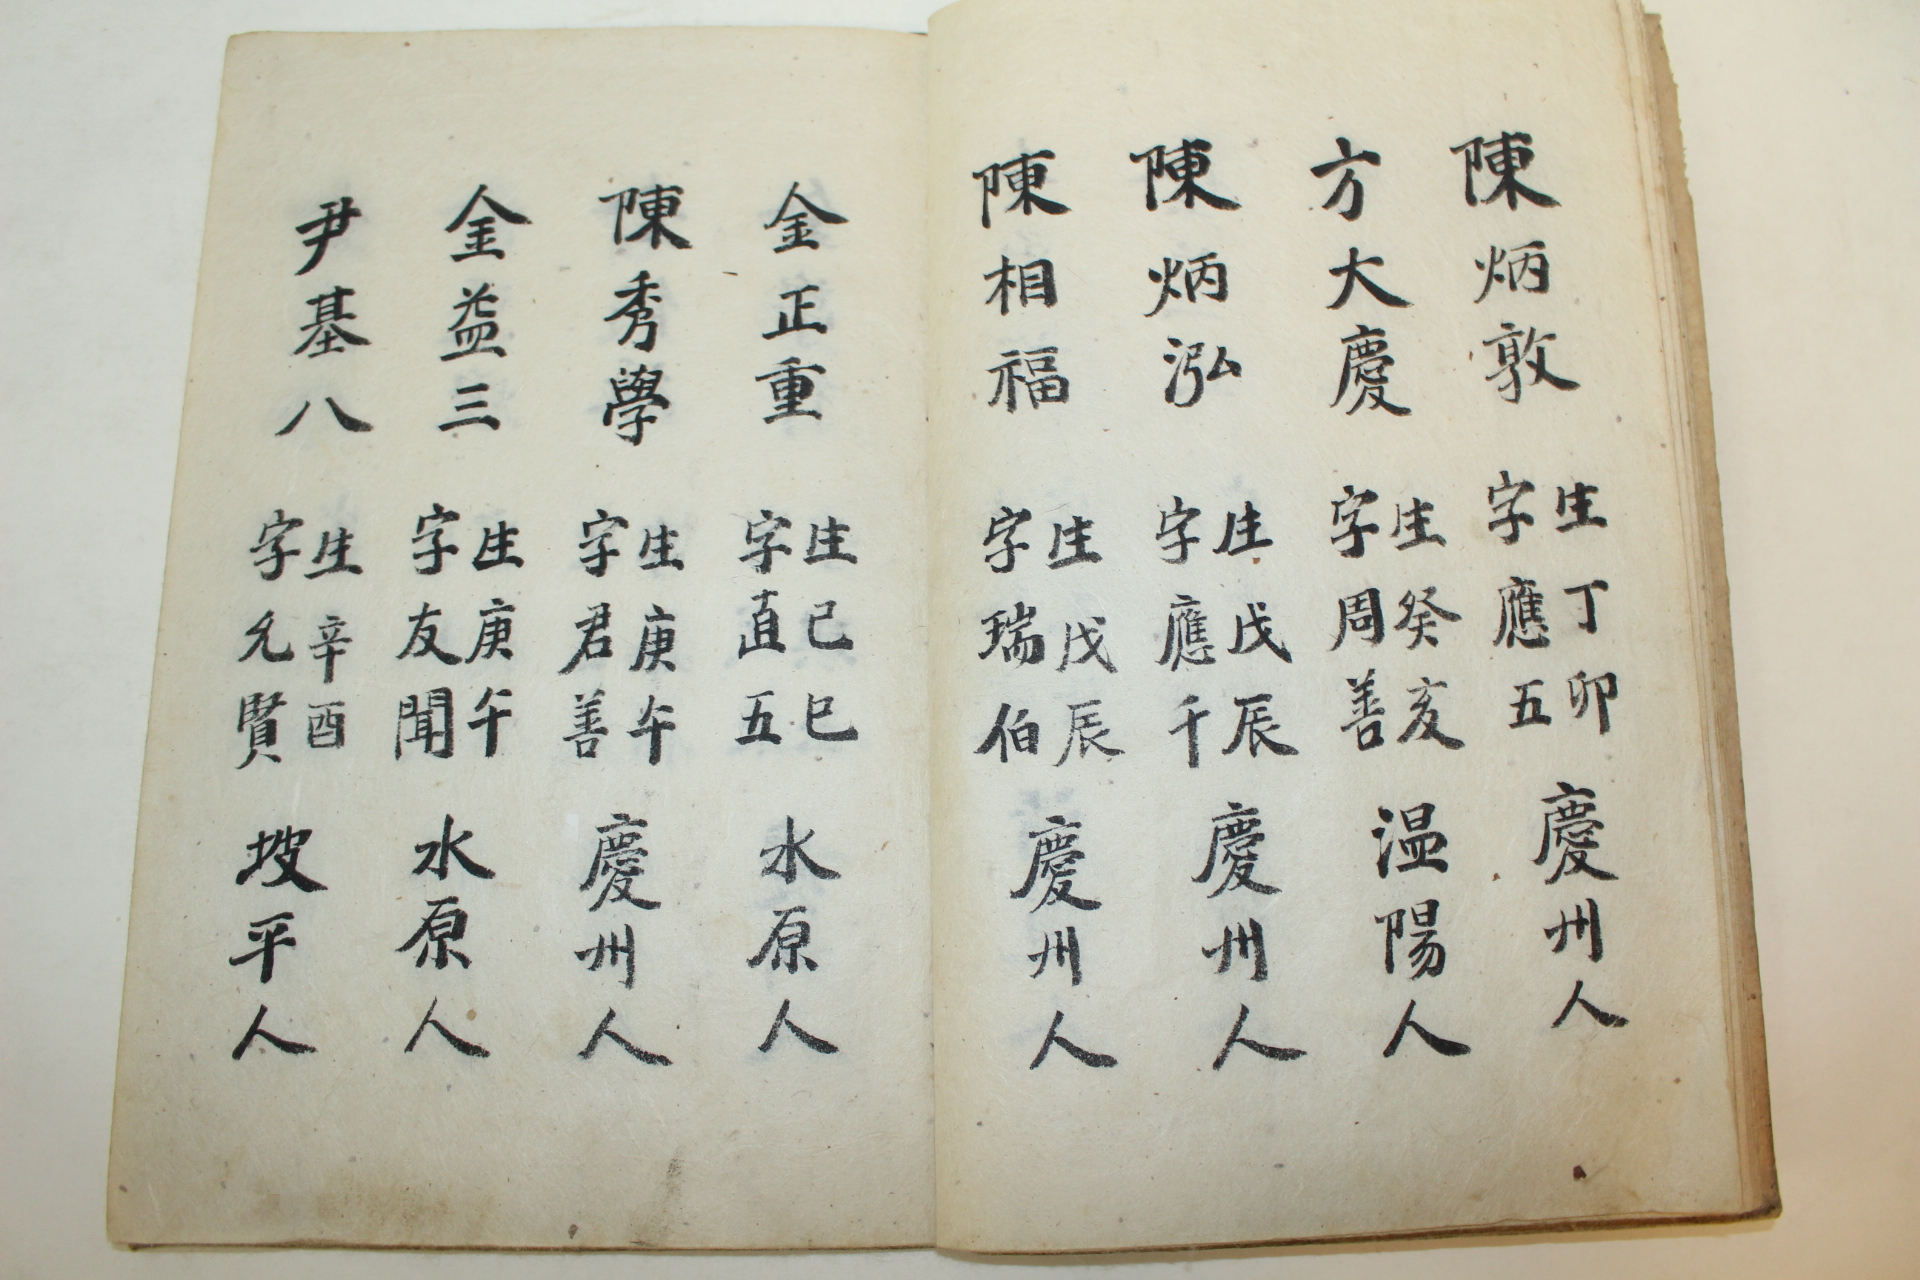 陳炳敦 生丁卯 字應五 慶州人
方大慶 生癸亥 字周善 温陽人
陳炳泓 生戊辰 字應千 慶州人
陳相福 生戊辰 字瑞伯 慶州人
金正重 生己巳 字直五 水原人
陳秀學 生庚午 字君善 慶州人
金益三 生庚午 字友聞 水原人
尹基八 生辛酉 字允賢 坡平人